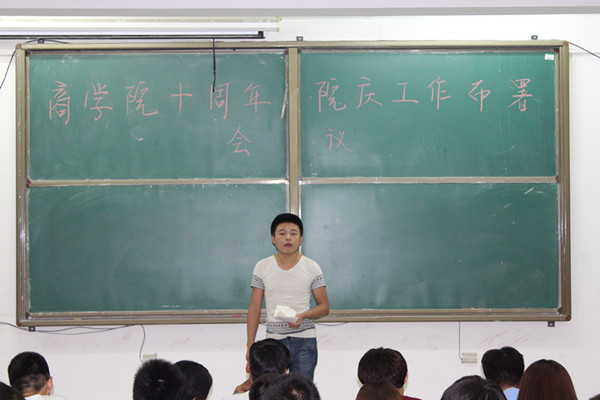 商学院十周年院庆工作布署
会议